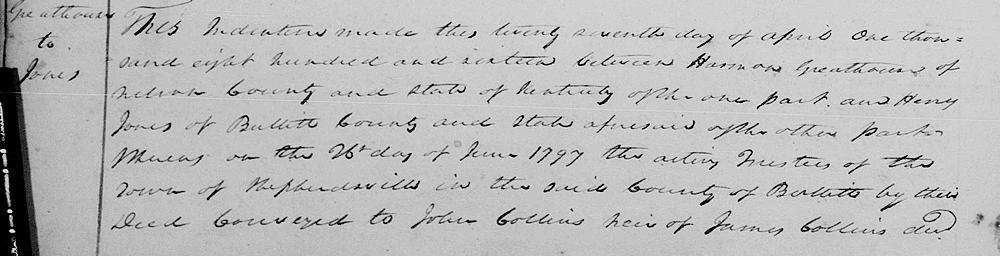 Greathouse
to
Jones
This Indenture made this twenty seventh day of april One thou=
sand eight hundred and sixteen between Harmon Greathouse of
nelson County and State of Kentucky of the one part. and Henry
Jones of Bullitt County and State aforesaid of the other part
Whereas on the 26th day of June 1797 the acting Trustees of the
Town of Shepherdsville in the said County of Bullitt by their
Deed Conveyed to John Collins heir of James Collins decd